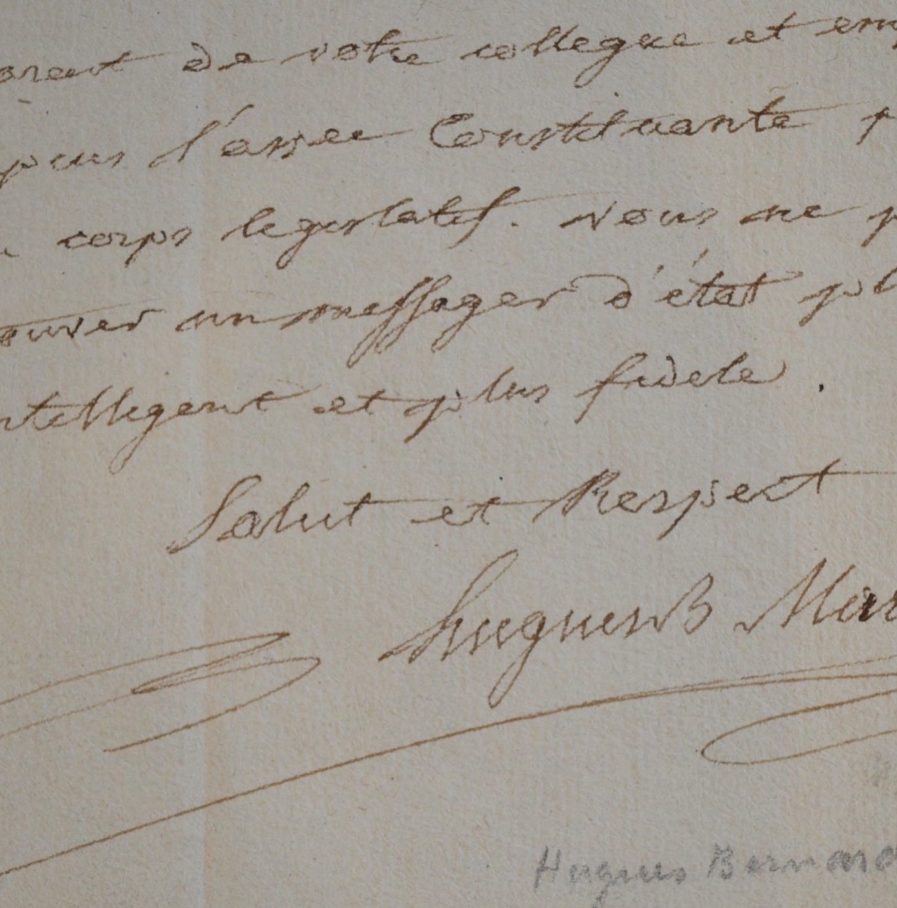 de votre collegue et
l'assee Constituante
corps legislatif. Nous ne
un messager d'état
intelligent et plus fidele.
Salut et Respect
Hugues B Mar
Hugues Bernard